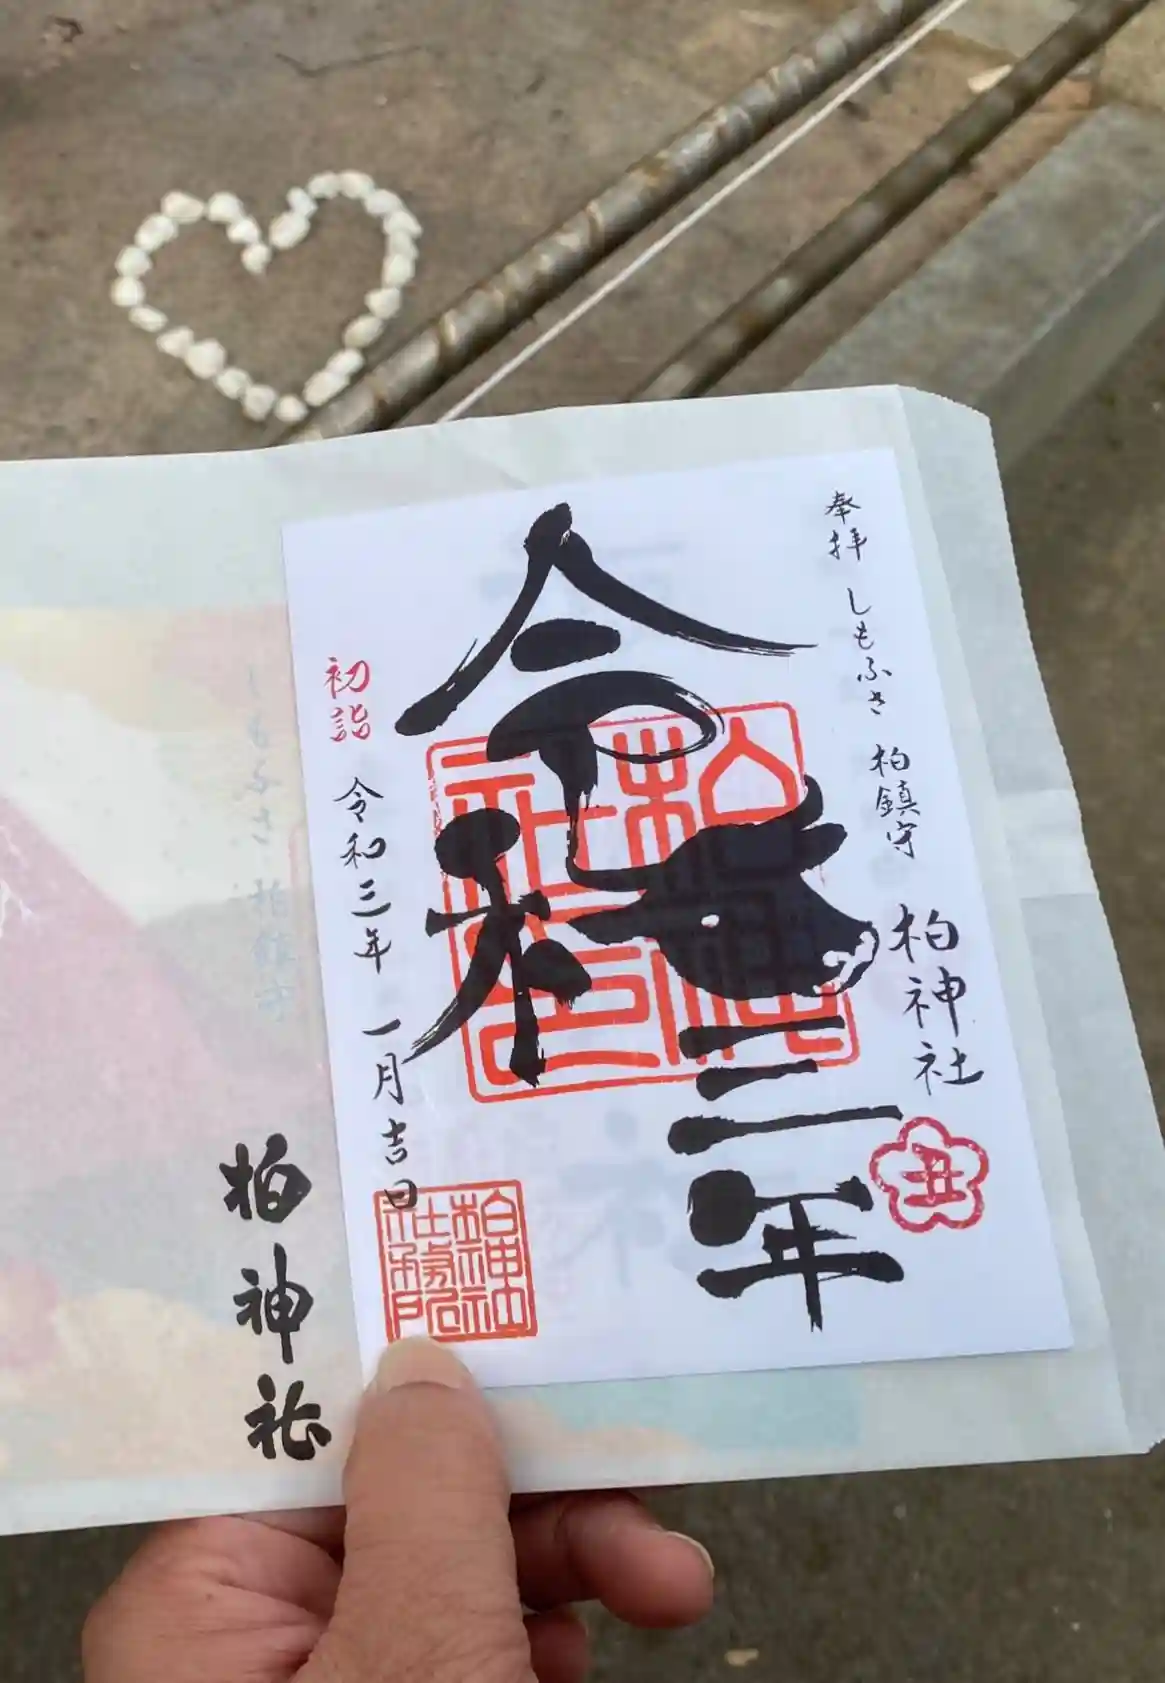 奉拝 しもふさ 柏鎮守 柏神社
丑
令和三年
初詣 令和三年 一月吉日
柏神社
柏神社
社務所
柏神社